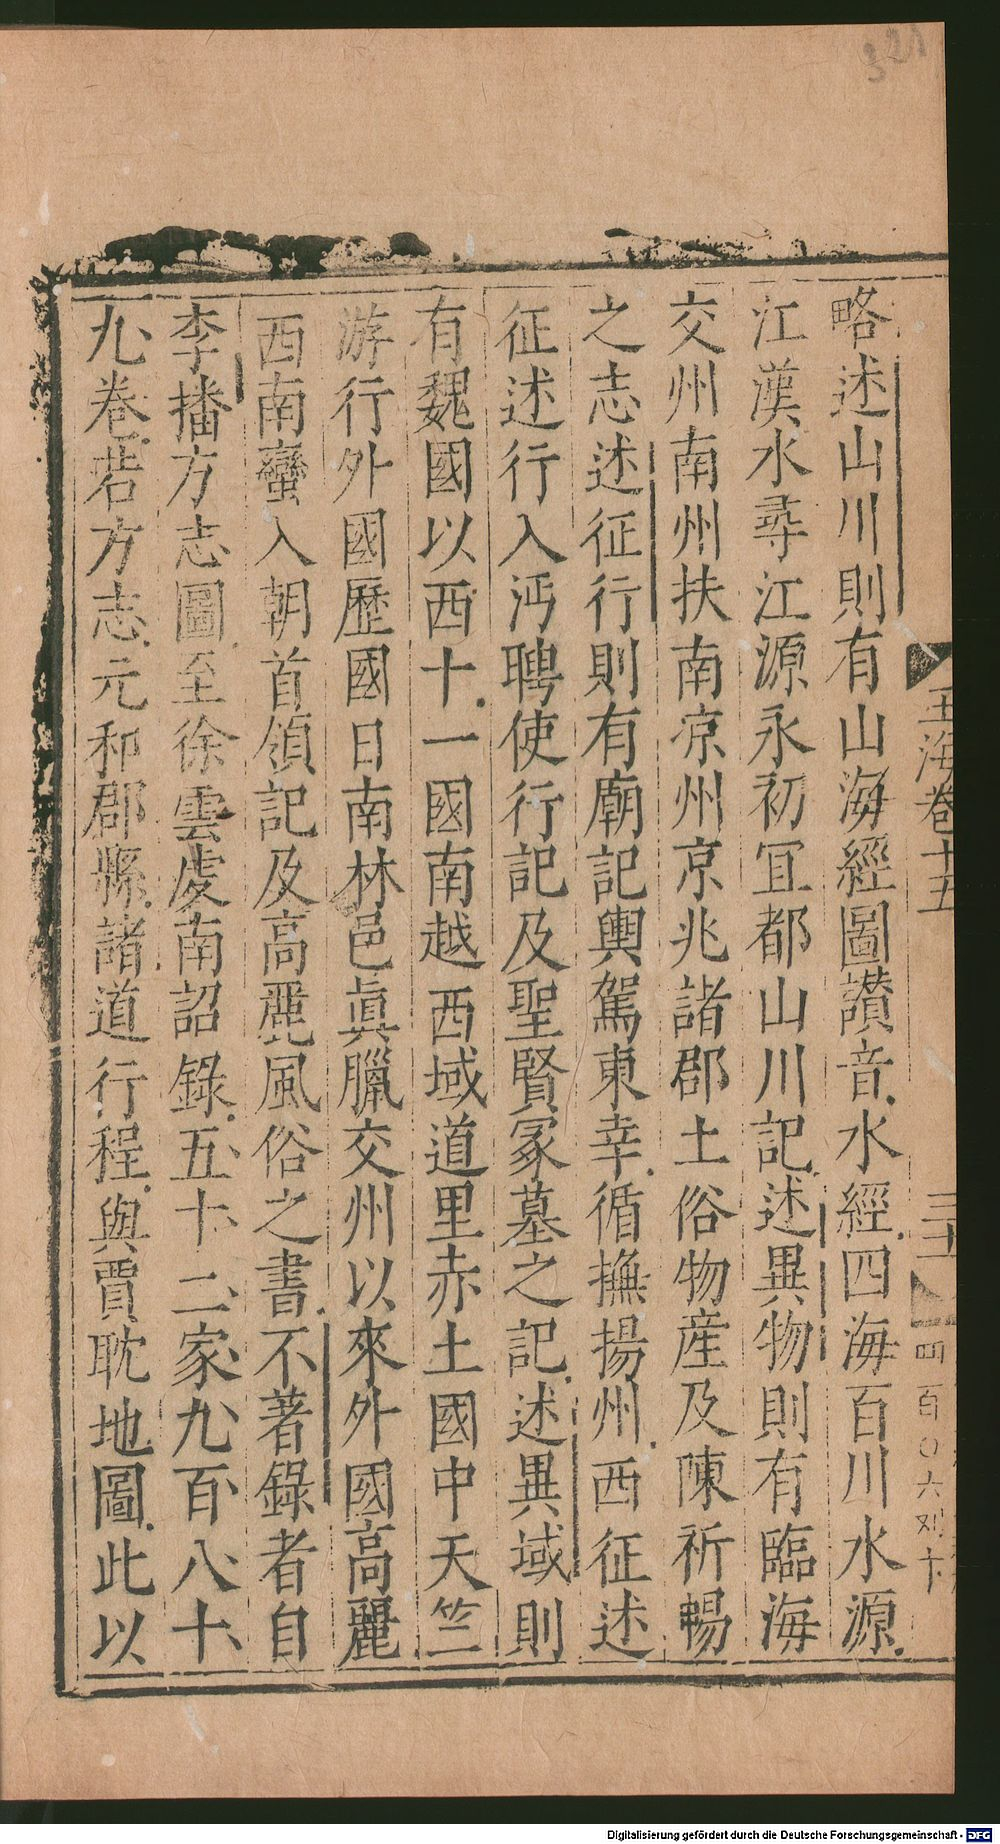 321
玉海卷十五
四百〇六
略述山川則有山海經圖讃音水經四海百川水源
江漢水尋江源永初冝都山川記述異物則有臨海
交州南州扶南涼州京兆諸郡土俗物産及陳祈暢
之志述征行則有廟記輿駕東幸循撫揚州西征述
征述行入沔聘使行記及聖賢冢墓之記述異域則
有魏國以西十一國南越西域道里赤土國中天竺
游行外國歷國日南林邑眞臘交州以來外國高麗
西南蠻入朝首領記及高麗風俗之書不著錄者自
李播方志圖至徐雲虔南詔錄五十二家九百八十
九卷若方志元和郡縣諸道行程與賈耽地圖此以
Digitalisierung gefördert durch die Deutsche Forschungsgemeinschaft - DFG